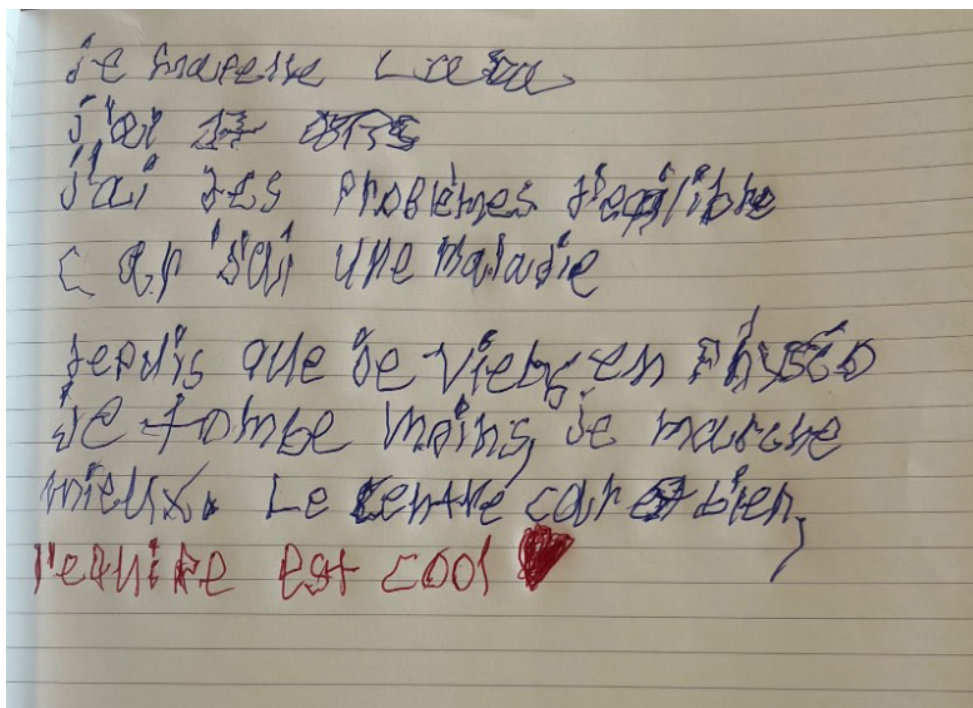 je mapelle
j'ai 17 ans
j'ai des problèmes d'eqilibre
car j'ai une maladie
depuis que je viens en physio
je tombe moins, je marche
mieux. Le centre car est bien,
l'equipe est cool